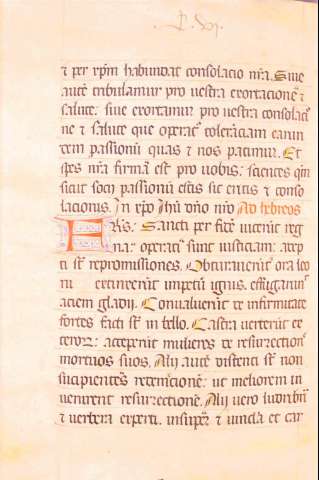 ⁊ per xp̄m habundat consolacio nr̄a. Siue
autē tribulamur pro uestra exortacione ⁊
salute. siue exortamur pro uestra consolacio
ne ⁊ salute que operat̄ toleraciam earun
dem passionū quas ⁊ nos patimur. Et
spes nr̄a firma est pro uobis: scientes qm̄
sicut socij passionū estis sic eritis ⁊ conso
lacionis. In xp̄o ih̄u dn̄o nr̄o Ad hebreos
FRS. Sancti per fidē uicerūt reg
na: operati sunt iusticiam: adep
ti st̄ repromissiones. Obturauerūt ora leo
nū extinxerūt impetū ignis. effugarunt
aciem gladij. Conualuerūt de infirmitate
fortes facti st̄ in bello. Castra uerterūt ex
teroꝝ: acceperūt mulieres de resurrectione
mortuos suos. Alij autē distenti st̄ non
suscipientes redemcionē: ut meliorem in
uenirent resurrectionē. Alij uero ludibria
⁊ uerbera experti. insuper ⁊ uincla et car